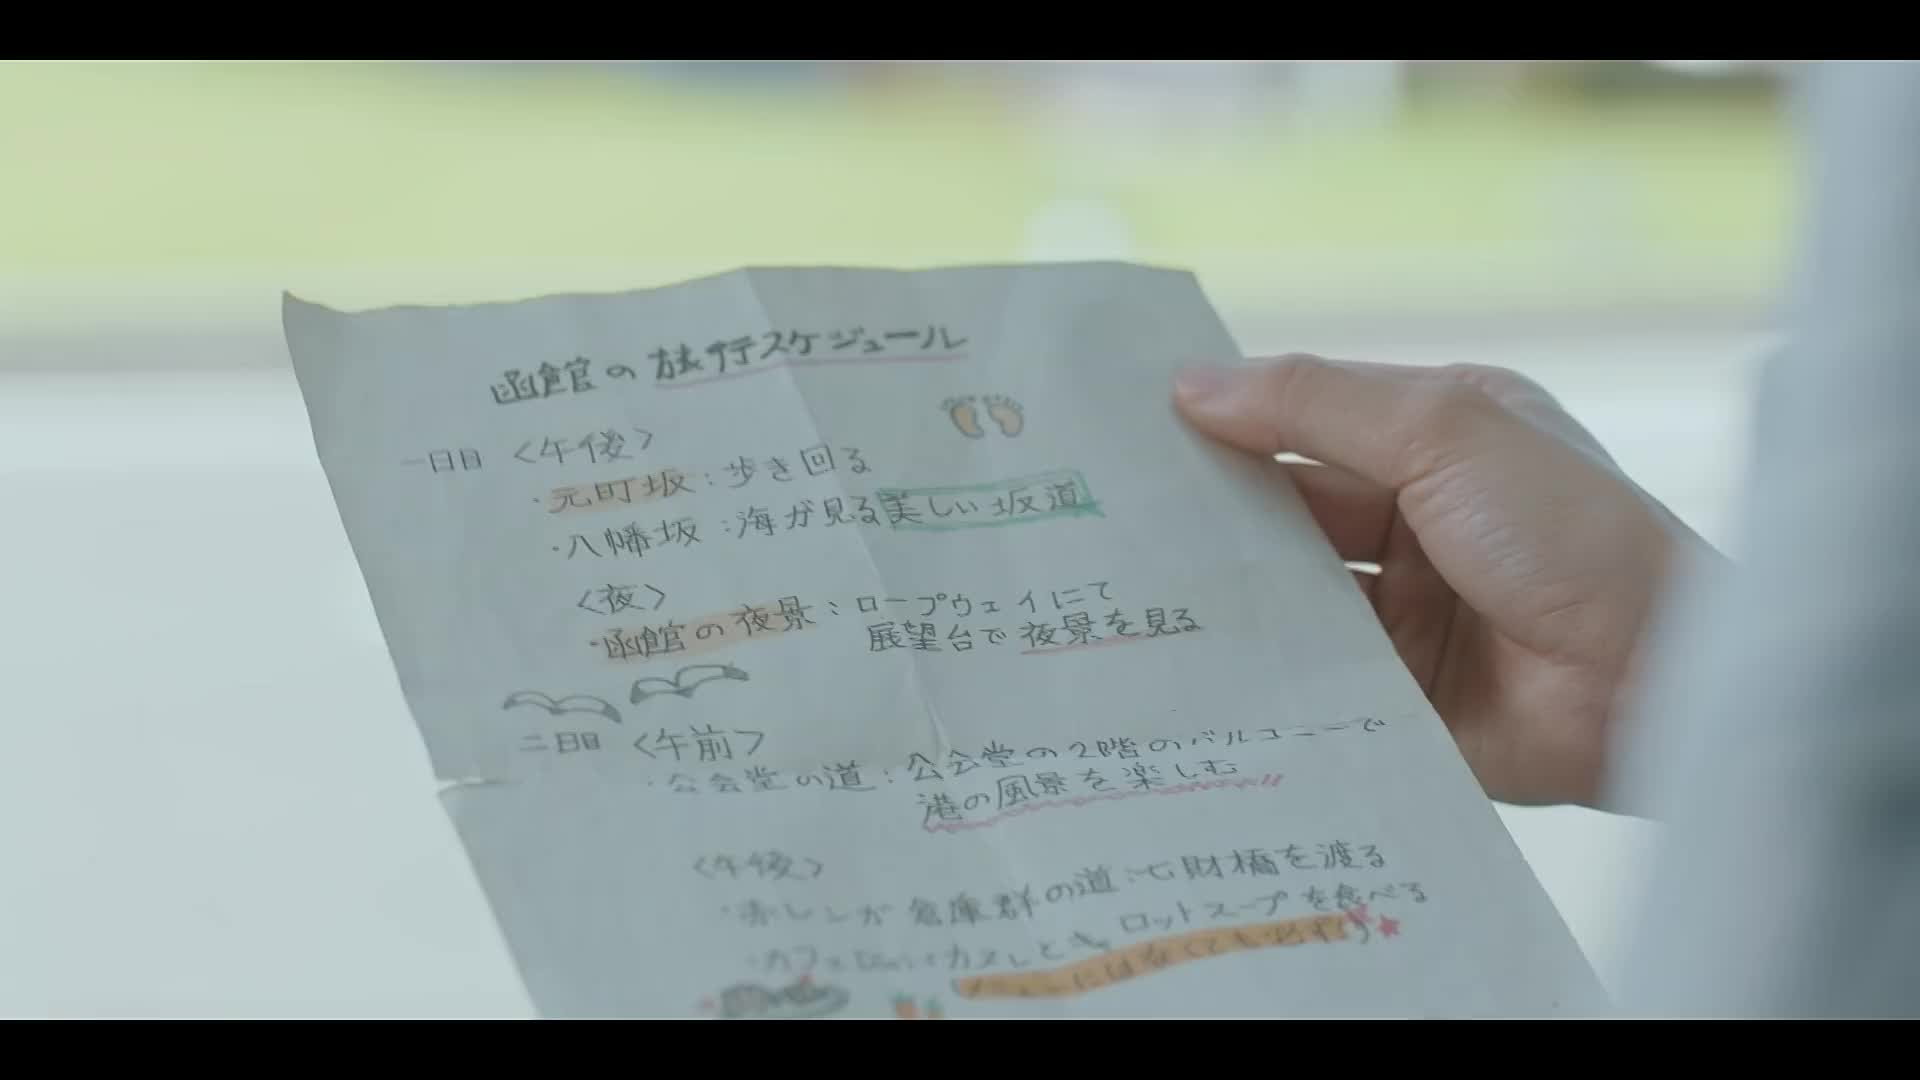 函館の旅行スケジュール
一日目 〈午後〉
・元町坂：歩き回る
・八幡坂：海が見る美しい坂道
〈夜〉
・函館の夜景：ロープウェイにて
展望台で夜景を見る
二日目 〈午前〉
・公会堂の道：公会堂の2階のバルコニーで
港の風景を楽しむ
〈午後〉
・赤レンガ倉庫群の道：七財橋を渡る
・カフェ カヌレとキャロットスープを食べる